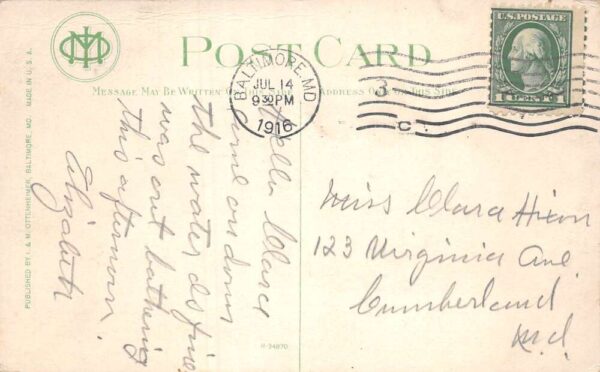 POST CARD
MESSAGE MAY BE WRITTEN ON THIS SIDE
ADDRESS ONLY ON THIS SIDE
U.S. POSTAGE
1 CENT 1
BALTIMORE, MD.
JUL 14
9 30 PM
1916
3
C
Hello Clara
come on down
the water is fine
was out bathing
this afternoon.
Elizabeth
Miss Clara Hixon
123 Virginia Ave
Cumberland
Md.
PUBLISHED BY I. & M. OTTENHEIMER, BALTIMORE, MD. MADE IN U. S. A.
R-74870